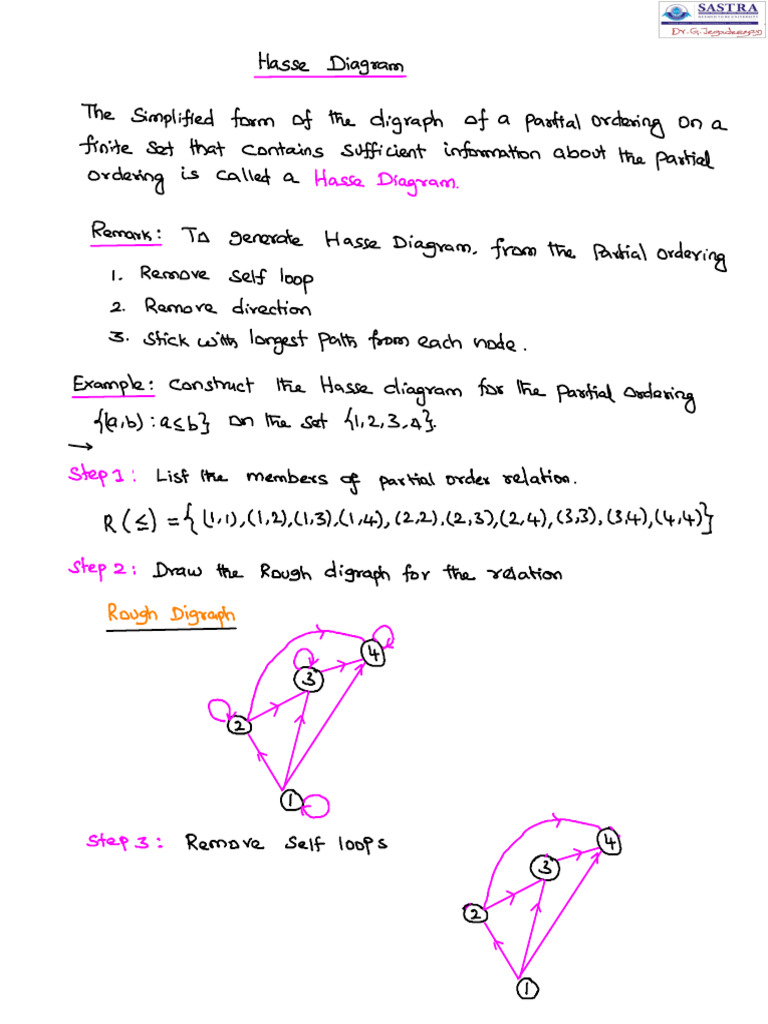 SASTRA
Dr.G.Jegadeesan
Hasse Diagram
The Simplified form of the digraph of a partial ordering on a
finite set that contains sufficient information about the partial
ordering is called a Hasse Diagram.
Remark: To generate Hasse Diagram, from the Partial ordering
1. Remove self loop
2. Remove direction
3. Stick with largest path from each node.
Example: Construct the Hasse diagram for the partial ordering
{(a,b) : a≤b} on the set {1,2,3,4}.
→
Step 1: List the members of partial order relation.
R(≤) = {(1,1),(1,2),(1,3),(1,4),(2,2),(2,3),(2,4),(3,3),(3,4),(4,4)}
Step 2: Draw the Rough digraph for the relation
Rough Digraph
4
3
2
1
Step 3: Remove self loops
4
3
2
1